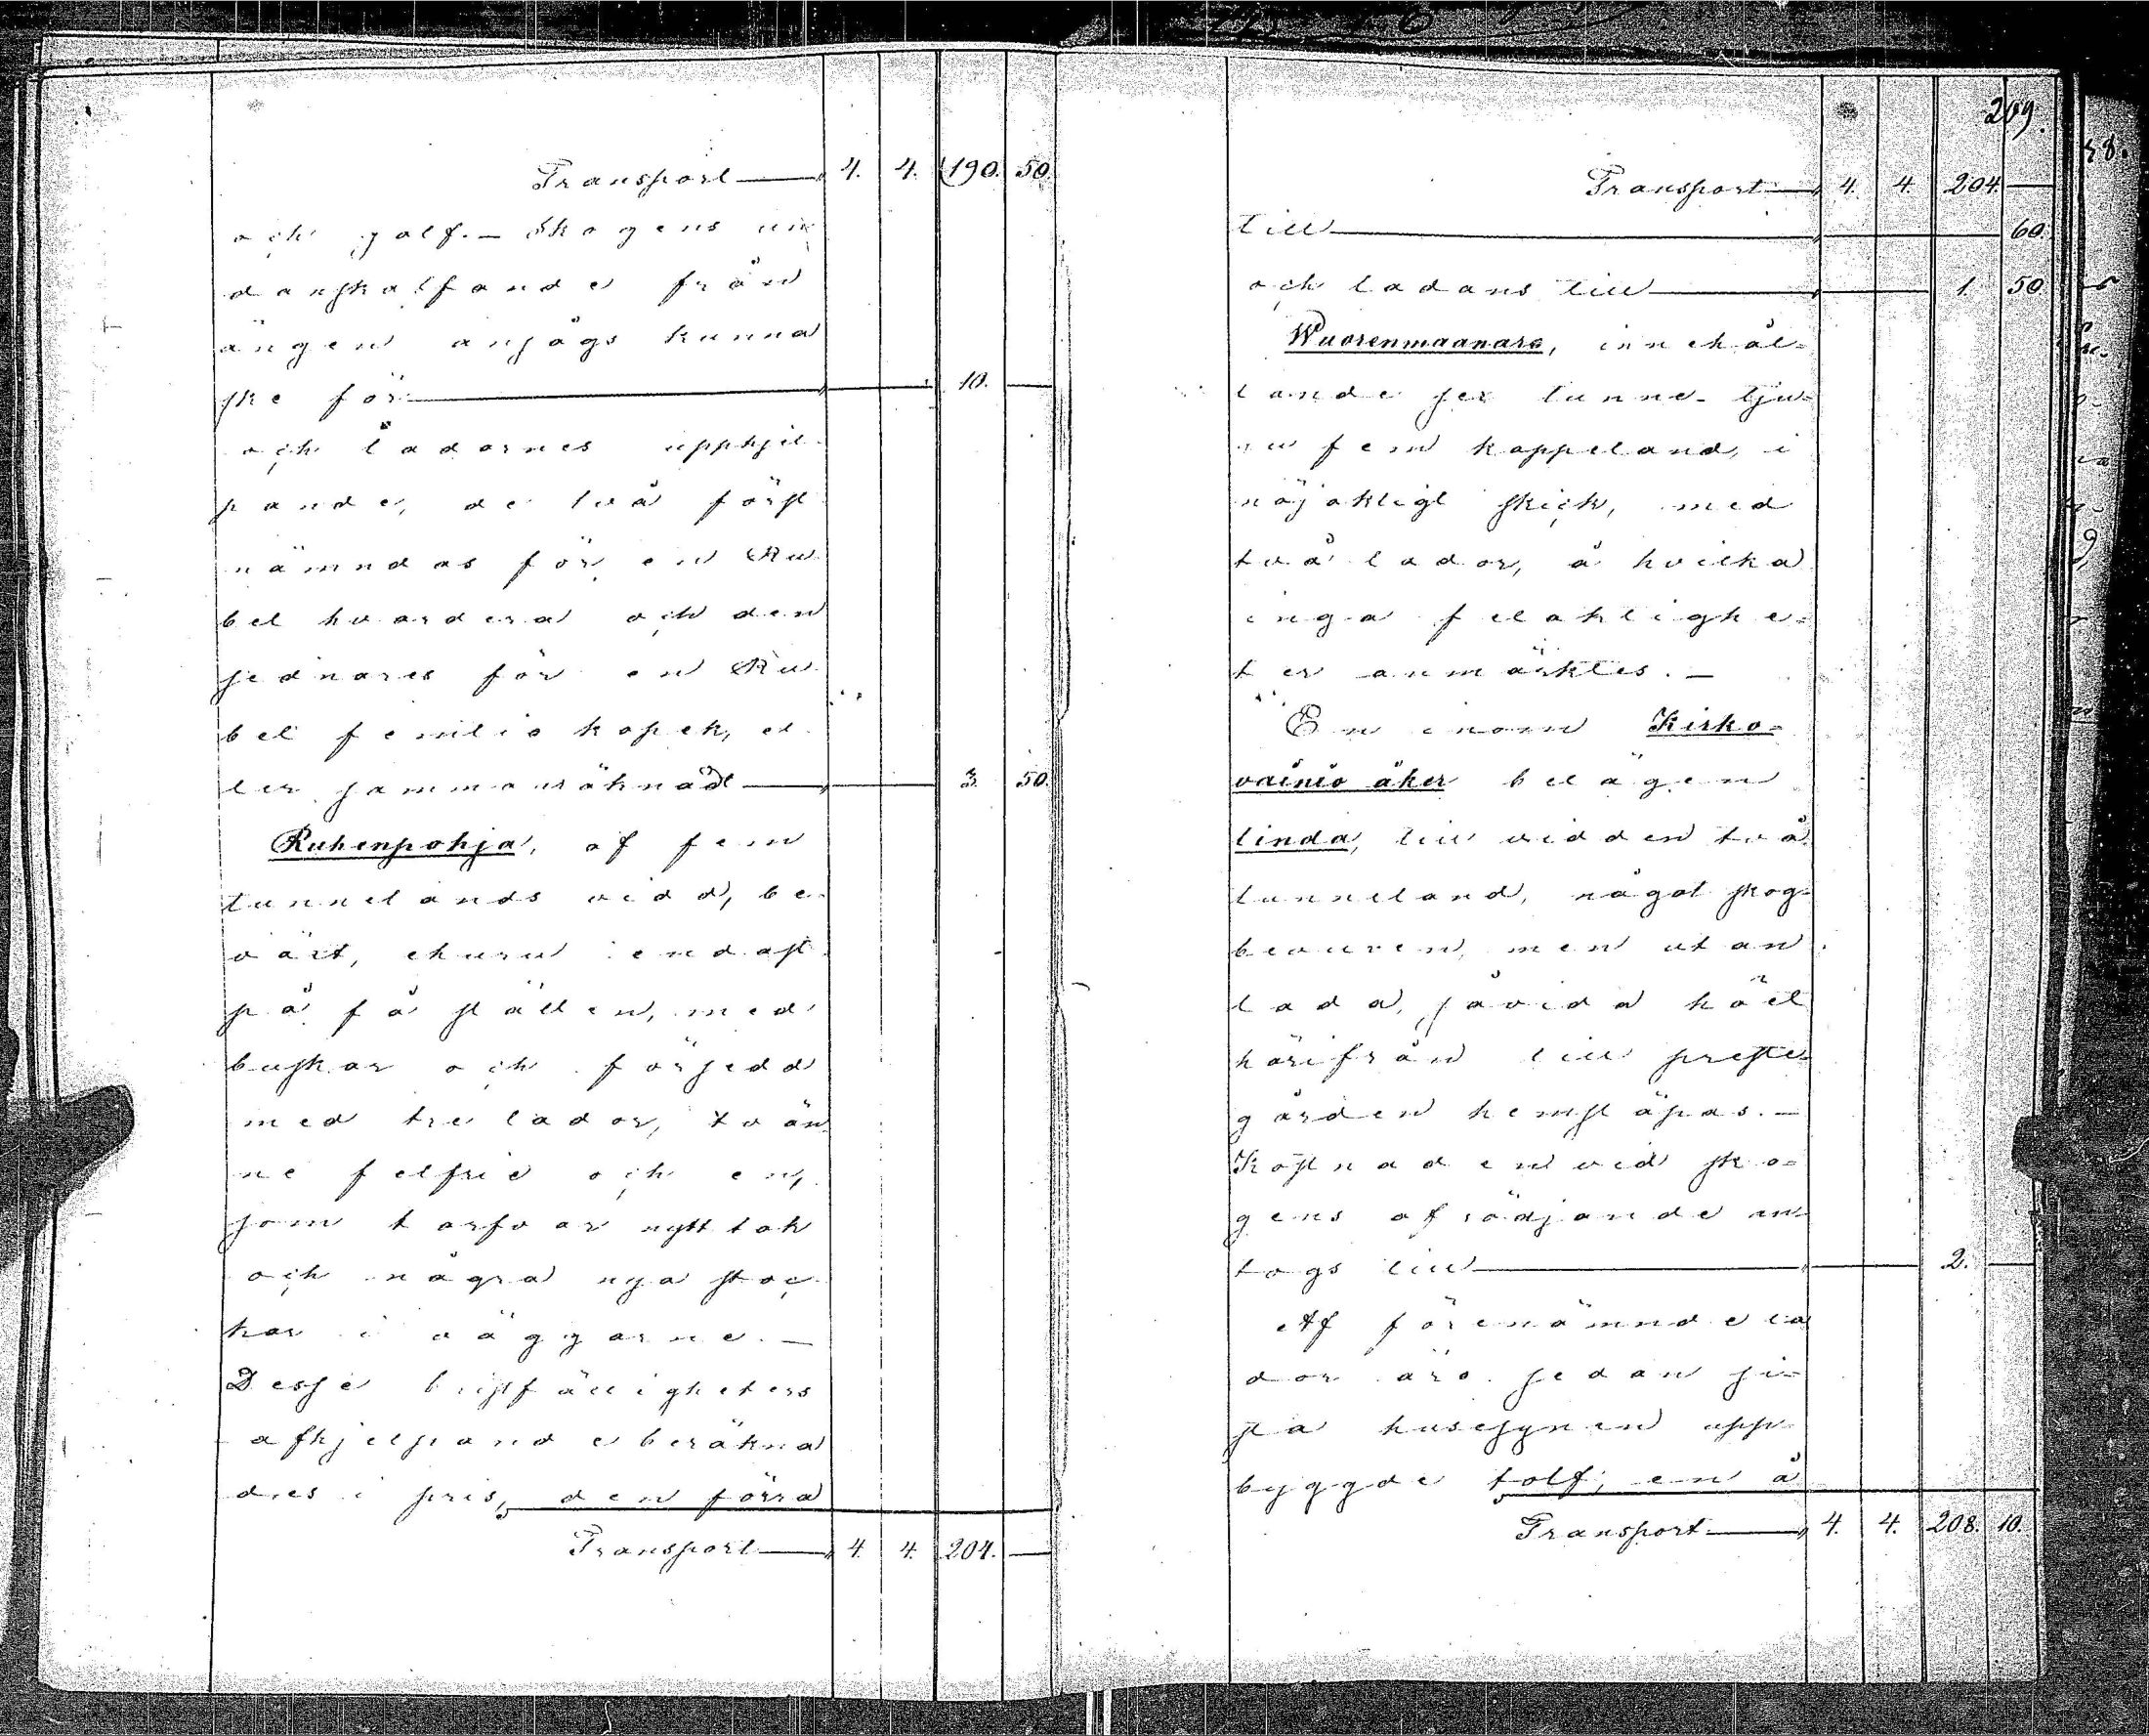 Transport 4. 4. 190. 50.
och golf. — Skogens un
danskaffande från
ängen ansågs kunna
ske för 10. —
och ladornes upphjel
pande, de två först
nämndas för en Ru
bel hvardera och den
sednares för en Ru
bel femtio kopek, el
ler sammanräknadt 3. 50.
Ruhenpohja, af fem
tunnelands vidd, be-
växt, ehuru endast
på få ställen, med
buskar och försedd
med tre lador, tvän
ne felfrie och en,
som tarfvar nytt tak
och några nya stoc
kar i väggarne. —
Desse bristfälligheters
afhjelpande beräkna
des i pris, den förra
Transport 4. 4. 204. —
209.
Transport 4. 4. 204. —
till 60.
och ladans till 1. 50
Wuorenmaanara, innehål-
lande sex tunne- tju-
gu fem kappeland, i
nöjaktigt skick, med
två lador, å hvilka
inga felaktighe-
ter anmärktes. —
En inom Kirko-
vainio åker belägen
linda, till vidden två
tunneland, något skog-
bevuxen, men utan
lada, såvida höet
härifrån till preste-
gården hemsläpas. —
Kostnaden vid sko-
gens afrödjande an-
togs till 2. —
Af förenämnde la
dor äro sedan si-
sta husesynen upp-
byggde tolf; en å
Transport 4. 4. 208. 10.